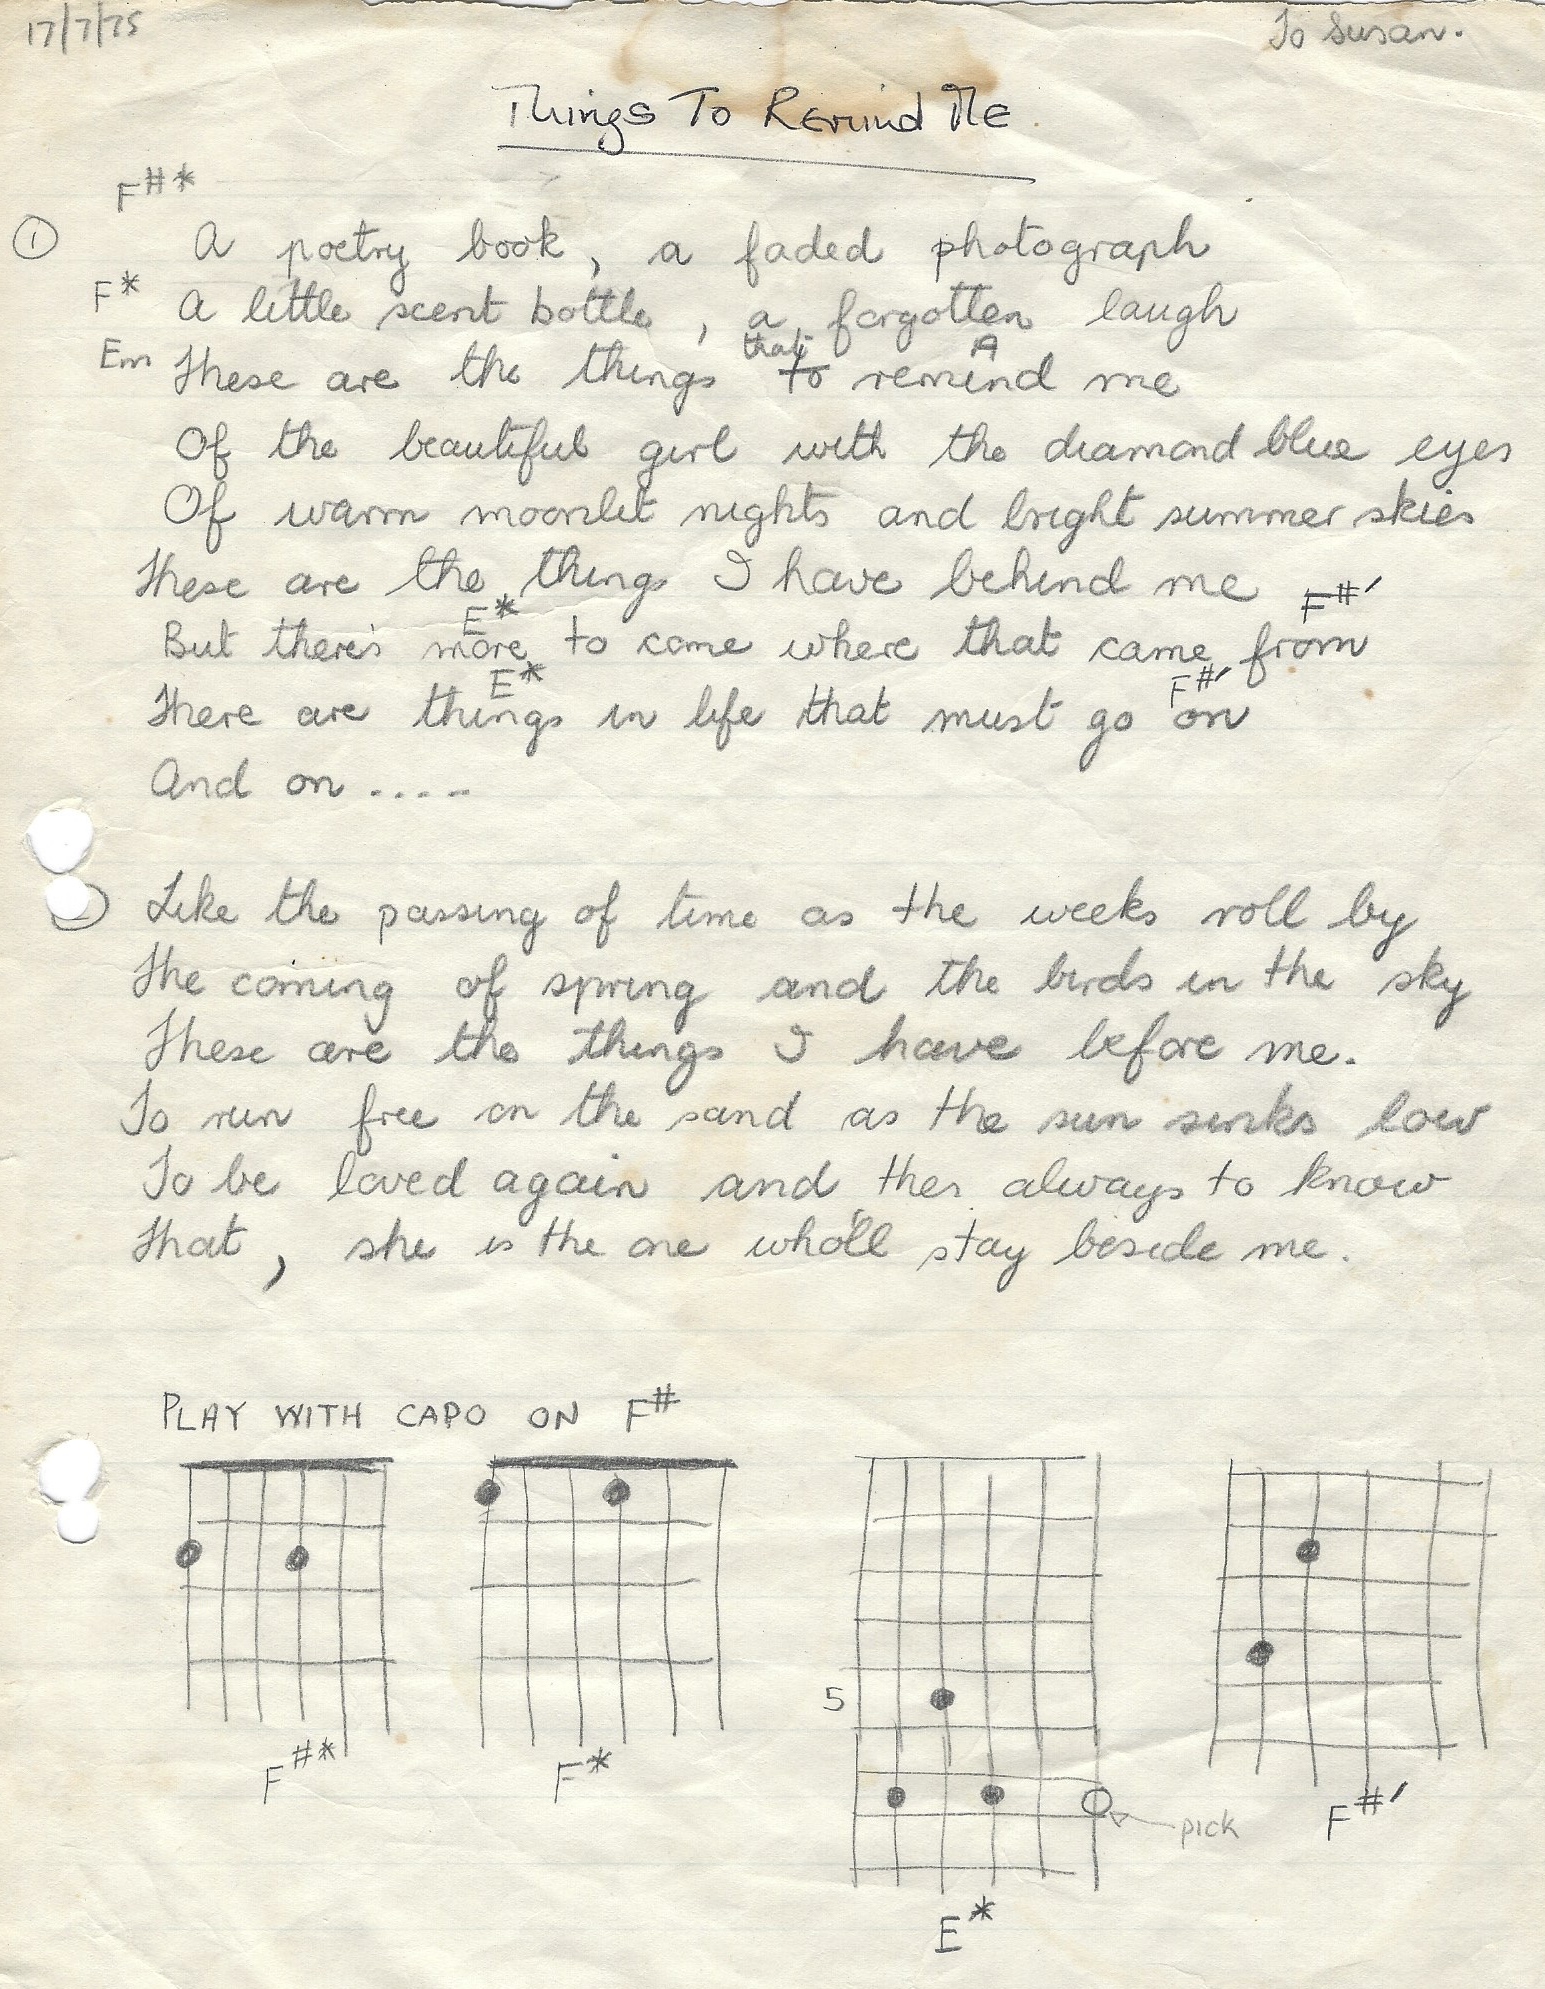 17/7/75
To Susan.
Things To Remind Me
F#*
① A poetry book, a faded photograph
F* A little scent bottle, a forgotten laugh
that A
Em These are the things to remind me
Of the beautiful girl with the diamond blue eyes
Of warm moonlit nights and bright summer skies
These are the things I have behind me
E* F#'
But there's more to come where that came from
E* F#'
There are things in life that must go on
And on ....
Like the passing of time as the weeks roll by
The coming of spring and the birds in the sky
These are the things I have before me.
To run free on the sand as the sun sinks low
To be loved again and then always to know
That, she is the one who'll stay beside me.
PLAY WITH CAPO ON F#
5
pick
F#* F* F#'
E*